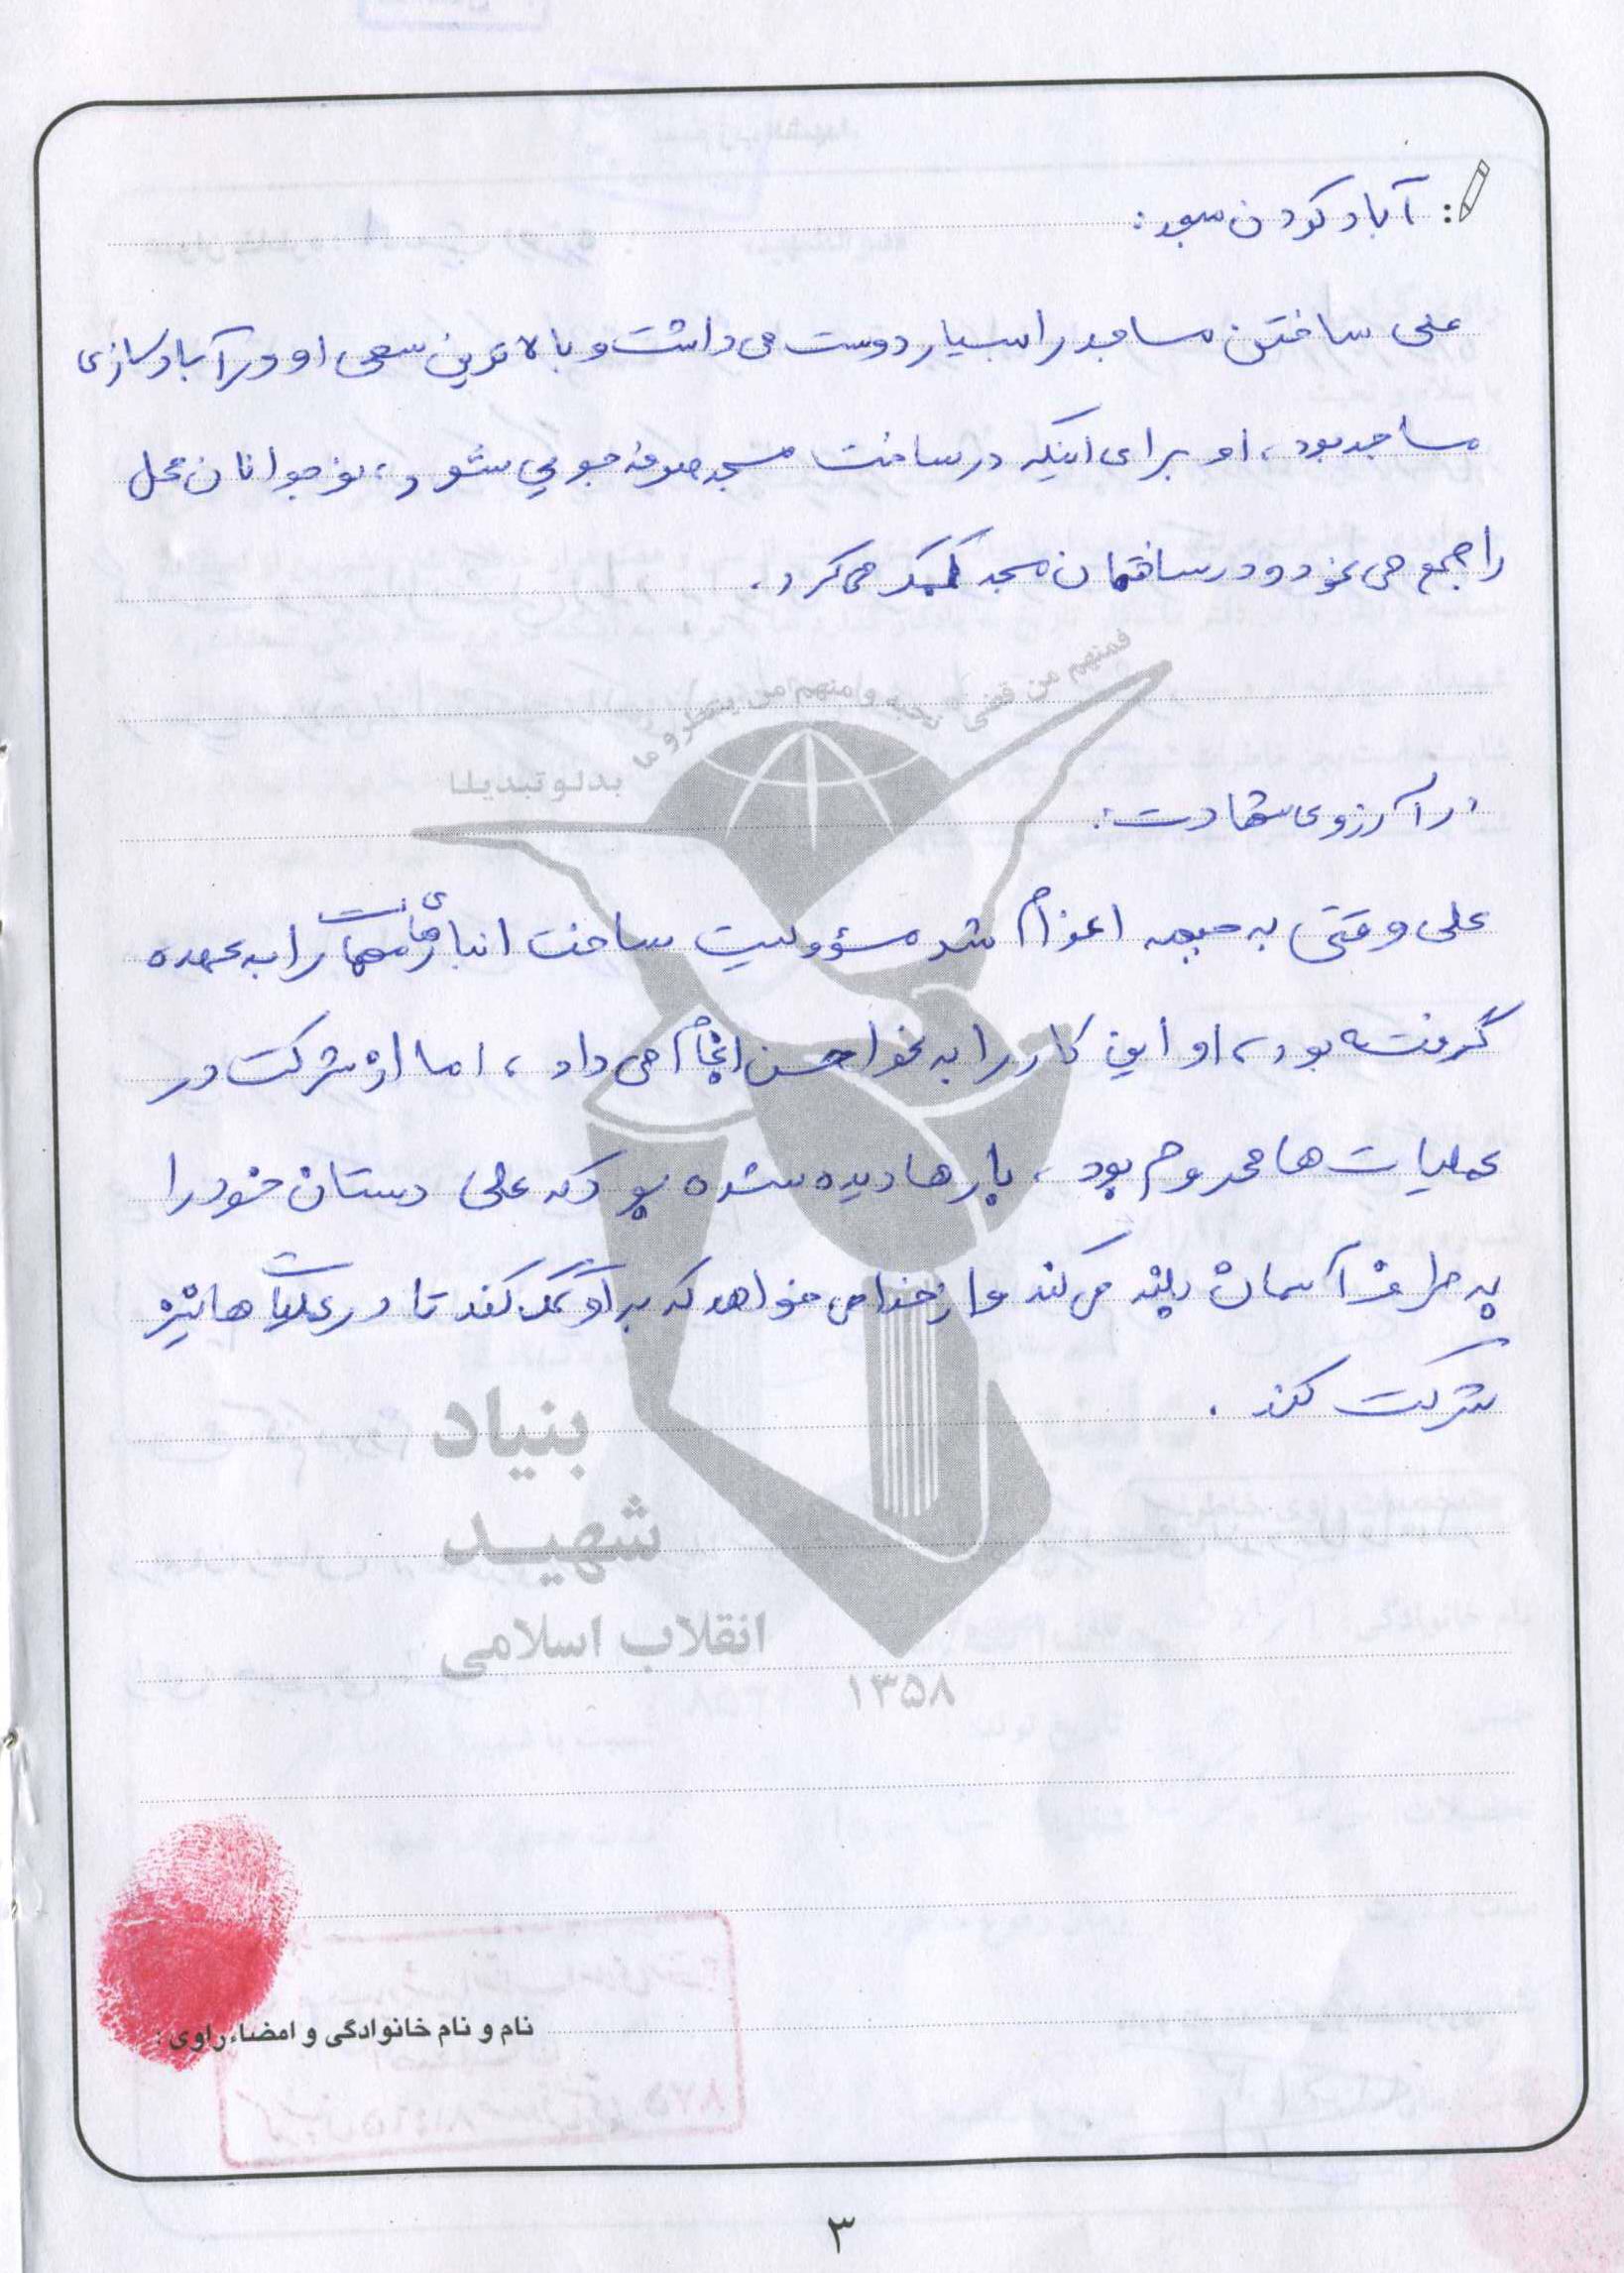 : آباد کردن مسجد :
علی ساختن مساجد را بسیار دوست می داشت و بالاترین سعی او در آبادسازی
مساجد بود ، او برای اینکه در ساخت مسجد صرفه جویی شود ، نوجوانان محل
را جمع می نمود و در ساختمان مسجد کمک می کرد .
فمنهم من قضی نحبه و منهم من ینتظر و ما
بدلو تبدیلا
در آرزوی شهادت :
علی وقتی به جبهه اعزام شد مسؤولیت ساخت انبارهای مهمات را به عهده
گرفته بود ، او این کار را به نحو احسن انجام می داد ، اما از شرکت در
عملیات ها محروم بود ، بارها دیده شده بود که علی دستان خود را
به طرف آسمان بلند می کند و از خدا می خواهد که به او کمک کند تا در عملیات ها نیز
شرکت کند .
بنیاد
شهید
انقلاب اسلامی
۱۳۵۸
نام و نام خانوادگی و امضاء راوی :
۳